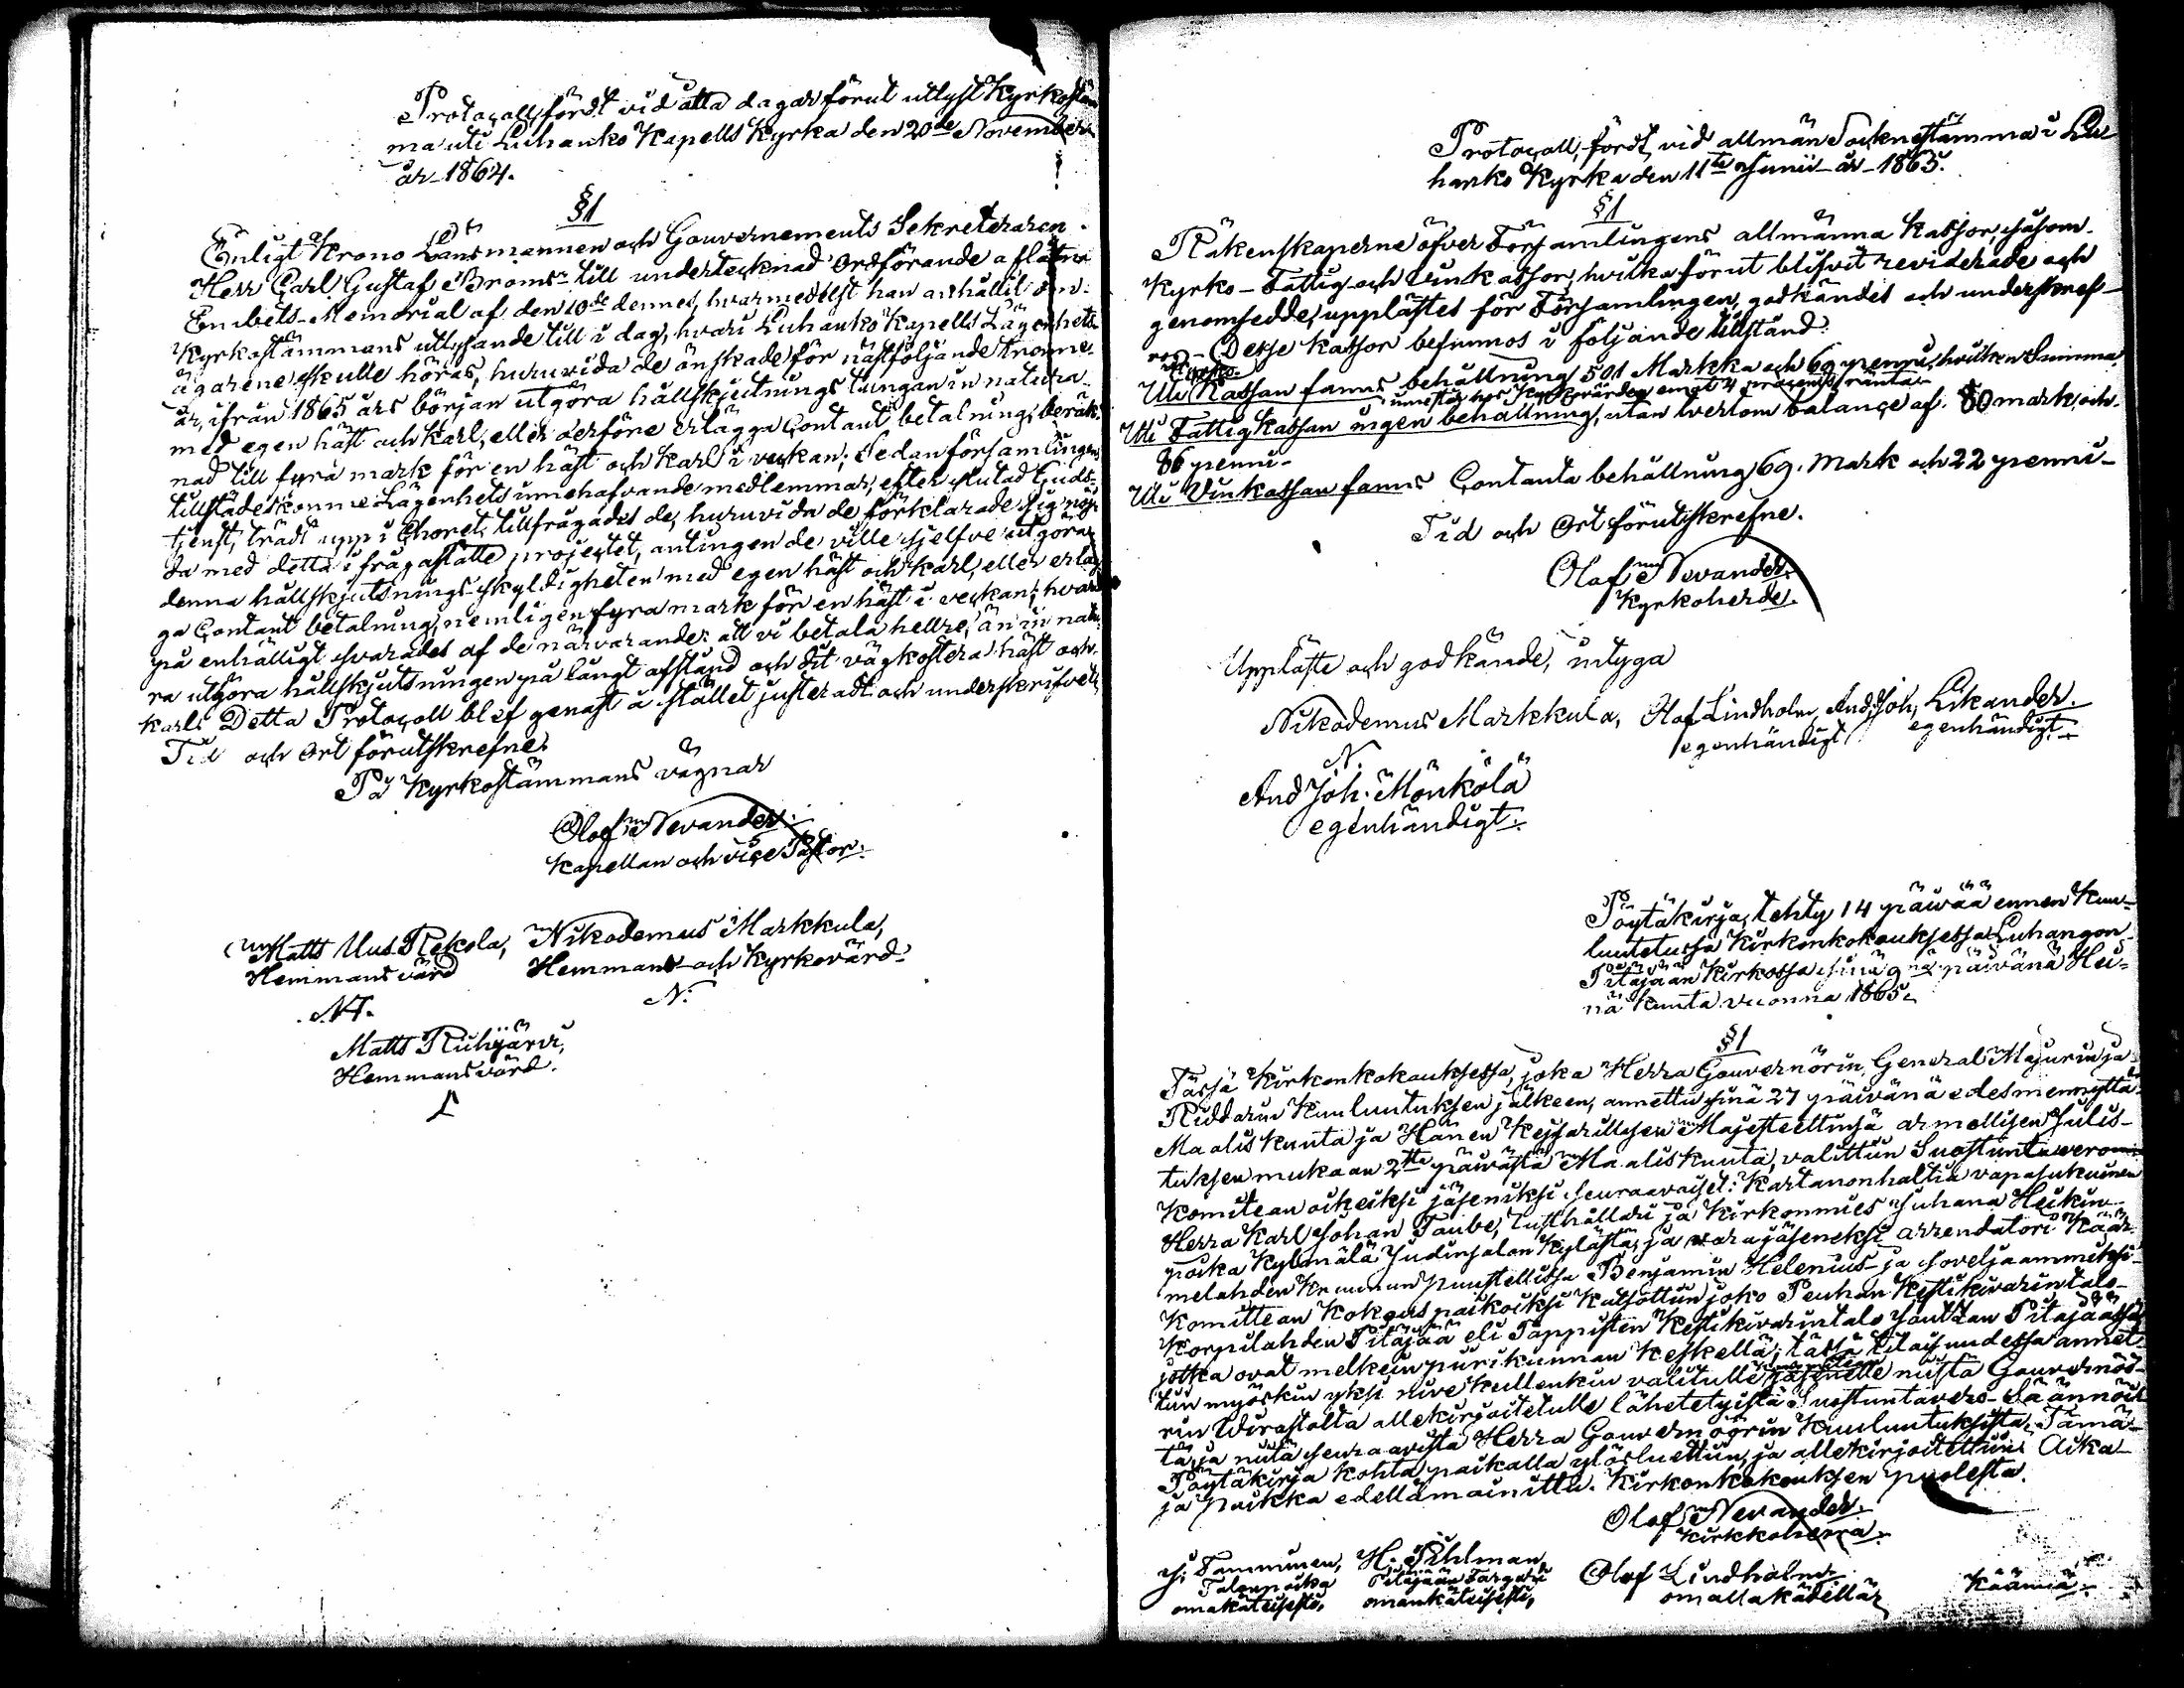 Protocoll, fördt vid åtta dagar förut utlyst Kyrkostäm
ma uti Luhanko Kapells Kyrka den 20de November
år 1864.
§1
Enligt Krono Länsmannen och Gouvernements Sekreteraren
Herr Carl Gustaf Broms till undertecknad Ordförande aflåtne
Embets-Memorial af den 10de dennes, hvarmedelst han anhållit om
Kyrkostämmans utlysande till i dag, hvari Luhanko Kapells Lägenhets-
ägarene skulle höras, huruvida de önskade för nästföljande trenne
år, ifrån 1865 års början utgöra hållskjutnings tungan in natura
med egen häst och karl, eller derföre erlägga Contant betalning, beräk-
nad till fyra mark för en häst och karl i veckan; Sedan församlingens
tillstädeskomne Lägenhets innehafvande medlemmar, efter slutad Guds-
tjenst, trädt upp i Choret, tillfrågades de, huruvida de förklarade sig nöj-
da med detta ifrågasatte projectet, antingen de ville sjelfve utgöra
denna hållskjutnings-skyldigheten med egen häst och karl, eller erläg-
ga Contant betalning, nemligen fyra mark för en häst i veckan; hvar-
på enhälligt svarades af de närvarande: att vi betala hellre, än in natu-
ra utgöra hållskjutsningen på långt afstånd och dit vägkostera häst och
karl. Detta Protocoll blef genast å stället justeradt och underskrifvet,
Tid och Ort förutskrefne.
På Kyrkostämmans vägnar
Olof Nevander.
Kapellan och vice Pastor.
Matts Uus Rekola, Nikodemus Markkula,
Hemmansvärd Hemmans- och Kyrkovärd.
N.
Matts Riihijärvi,
Hemmansvärd.
Protocoll, fördt vid allmän Socknestämma i Lu-
hanko Kyrka den 11te Junii år 1865.
§1
Räkenskaperne öfver Församlingens allmänna Kassor, såsom
Kyrko- Fattig- och Vinkassor, hvilka förut blifvit reviderade och
genomsedde, upplästes för Församlingen, godkändes och underskref-
vos. Desse Kassor befunnos i följande tillstånd:
Kyrko-
Uti Kassan fanns behållning 501 Markka och 69 penni, hvilken Summa
innestår hos Kyrkovärden emot 4 procents ränta.
Uti Fattigkassan ingen behållning, utan tvertom balance af 80 mark och
86 penni.
Uti Vinkassan fanns Contanta behållning 69. Mark och 22 penni.
Tid och Ort förutskrefne.
Olof Nevander.
Kyrkoherde.
Uppläste och godkände, intyga
Nikodemus Markkula, Olof Lindholm, And. Joh. Likander.
N. egenhändigt, egenhändigt.
And Joh. Mönkölä
egenhändigt.
Pöytäkirja, tehty 14 päivää ennen Kuu-
luutetussa Kirkonkokouksessa Luhangon
Pitäjään Kirkossa sinä 9nä päivänä Hei-
nä kuuta vuonna 1865.
§1
Tässä Kirkonkokouksessa, joka Herra Gouvernörin, General Majurin ja
Riddarin Kuuluutuksen jälkeen, annettu sinä 27 päivänä edesmennyttä
Maaliskuuta ja Hänen Keisarillisen Majesteettinsä armollisen Julis-
tuksen mukaan 2tta päivästä Maaliskuuta, valittiin Suostuntavero
Komitean oikeiksi jäseniksi seuraavaiset: Kartanonhaltia vapasukuinen
Herra Karl Johan Taube, Lusthålladi ja Kirkonmies Juhana Heikin-
poika Kylmälä Judinsalon Kylästä, ja varajäseneksi arrendatori Kää-
melahden Kruunun puustellissa Benjamin Helenius ja soveljaammiksi
Komittean Kokous paikoiksi Katsottiin joko Peuhan Kestikivarintalo
Korpilahden Pitäjää eli Tappisten Kestikivarintalo Jautzan Pitäjäässä
jotka ovat melkein piirikunnan Keskellä; tässä tilaisuudessa annet-
tiin myöskin yksi nivekullenkin valitulle jäsenelle niistä Gouvernöö-
rin Virastolta allekirjoitetulle lähetetyistä Suostuntavero-Säännöis-
tä, ja niitä seuraavista Herra Gouvernöörin Kuuluutuksista. Tämä
Pöytäkirja kohta paikalla ylösluettiin, ja allekirjoitettiin. Aika
ja paikka edellämainittu. Kirkonkokouksen puolesta.
Olof Nevander.
Kirkkoherra.
J. Tamminen, H. Pihlman, Olof Lindholm
Talonpoika omallakädellä
omakäteisesti, omankäteisesti,